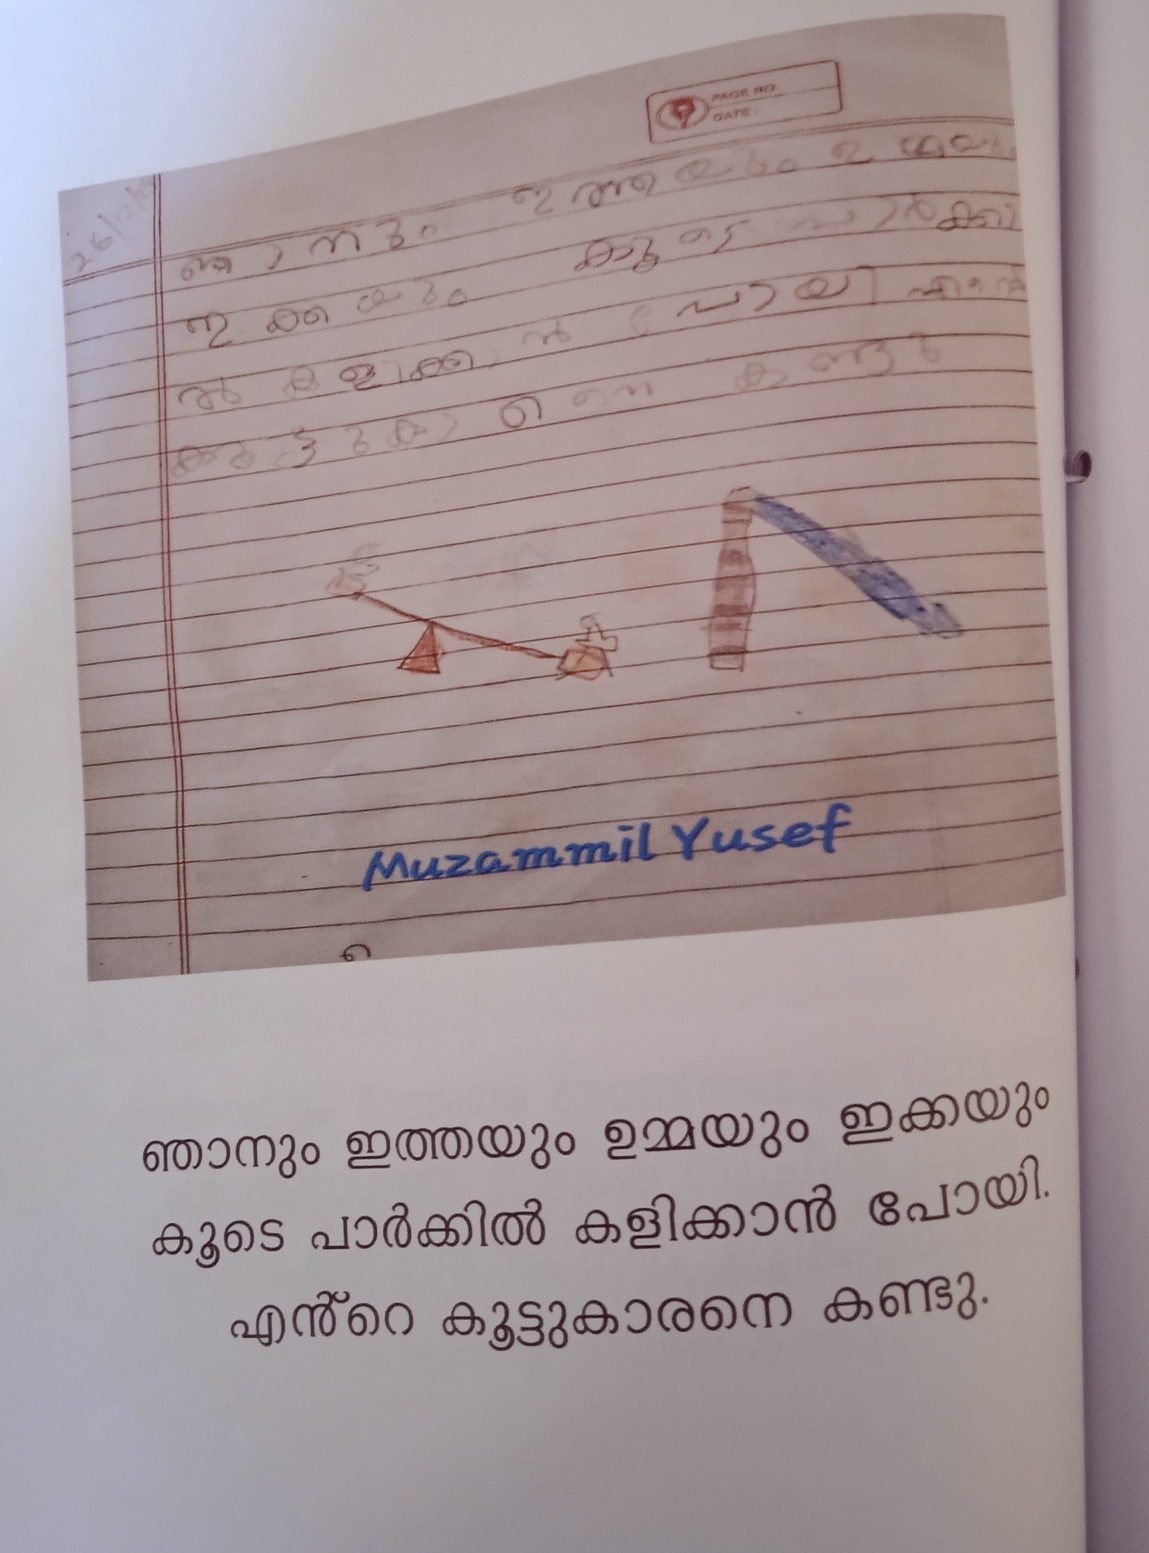 PAGE NO
DATE
ഞാനും ഇത്തയും
ഇക്കയും കൂടെ
കളിക്കാൻ പോയി
കണ്ടു
Muzammil Yusef
ഞാനും ഇത്തയും ഉമ്മയും ഇക്കയും
കൂടെ പാർക്കിൽ കളിക്കാൻ പോയി.
എൻ്റെ കൂട്ടുകാരനെ കണ്ടു.